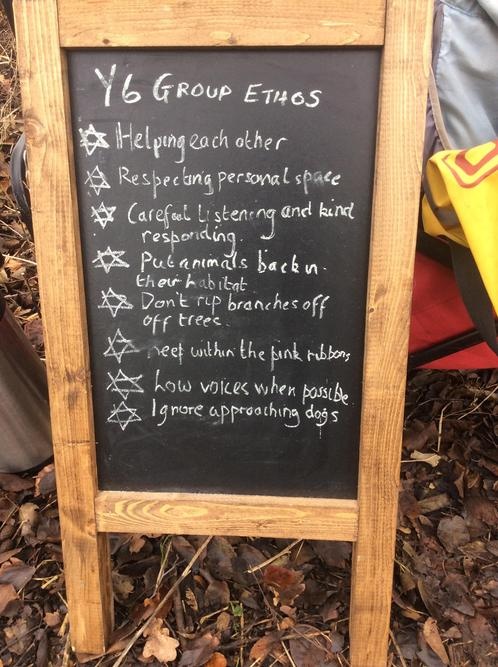 Y6 GROUP ETHOS
Helping each other
Respecting personal space
Carefool Listening and kind
responding.
Put animals back in
their habitat
Don't rip branches off
off trees.
within the pink ribbons
Low voices when possible
Ignore approaching dogs